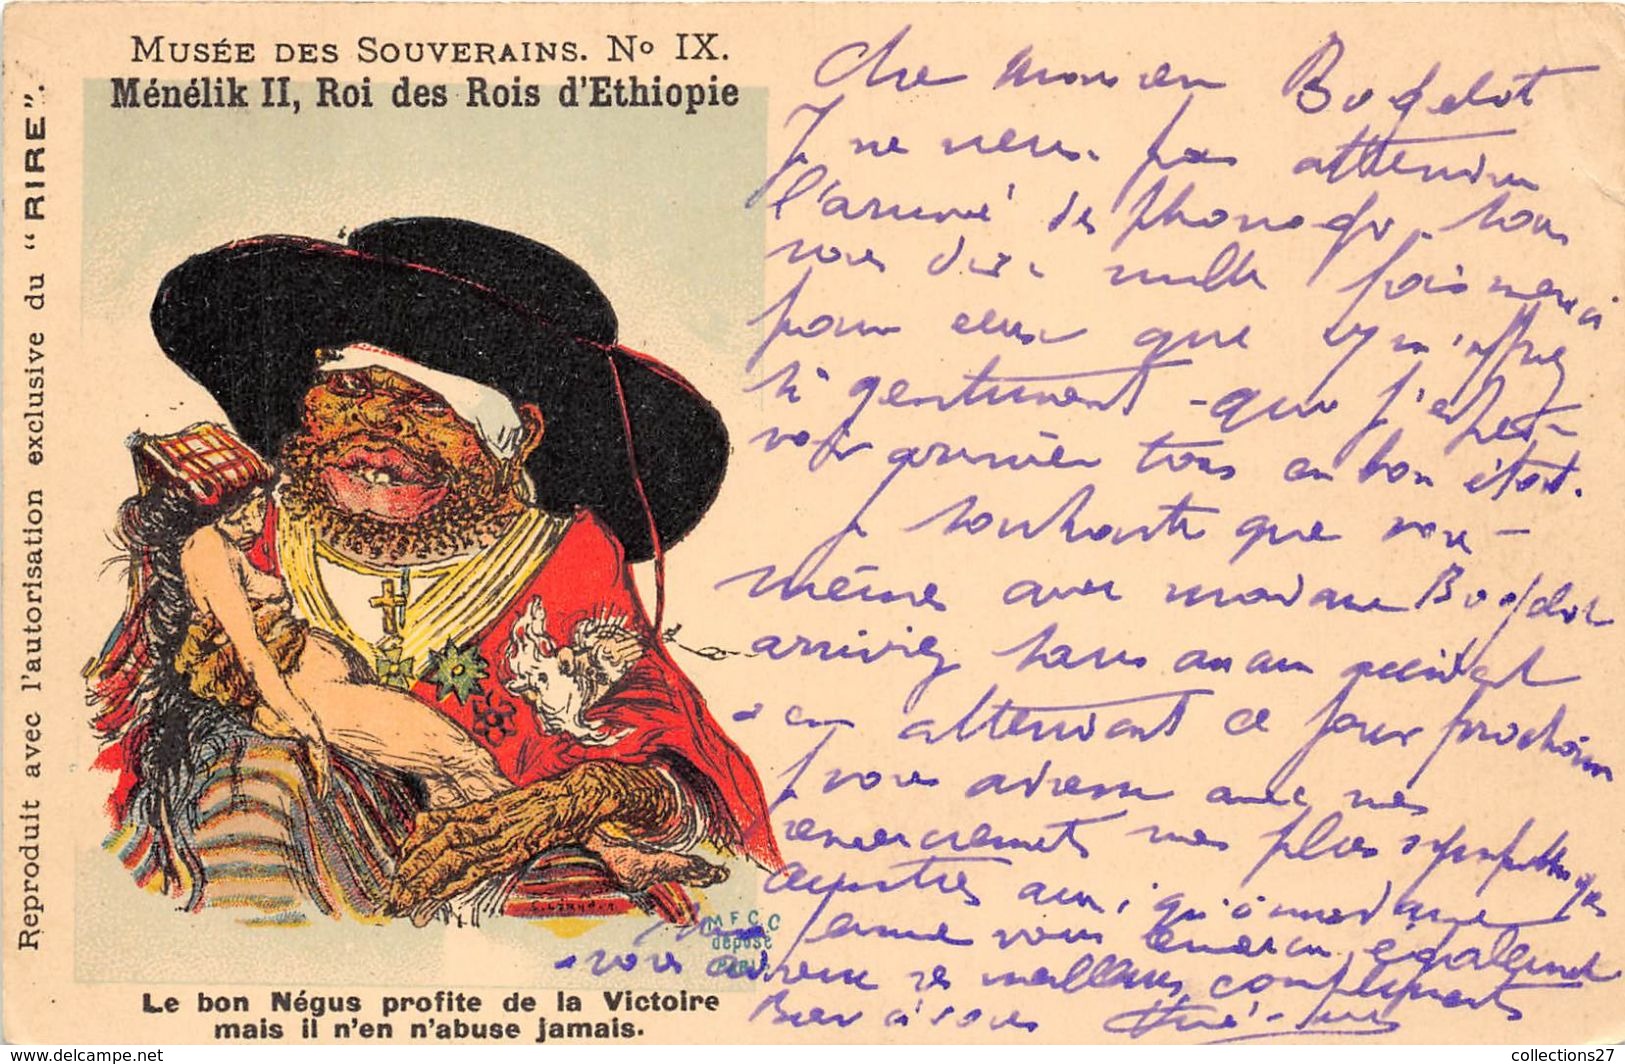 MUSÉE DES SOUVERAINS. No IX.
Ménélik II, Roi des Rois d'Ethiopie
Reproduit avec l'autorisation exclusive du "RIRE".
M.F.C.C
déposé
Le bon Négus profite de la Victoire
mais il n'en n'abuse jamais.
Bogelot
ne veux pas attendre
l'arrivé des phonogr
vous dire mille fois merci
pour ceux que m'offrez
si gentiment - que j'espère
voir arriver tous en bon état.
je souhaite que vous-
mêmes avec madame Bogelot
arriviez sans aucun accident
en attendant ce jour prochain
je vous adresse avec mes
remerciements mes plus sympathiques
ainsi qu'à madame
femme vous également
ses meilleurs compliments
Bien à vous
collections27